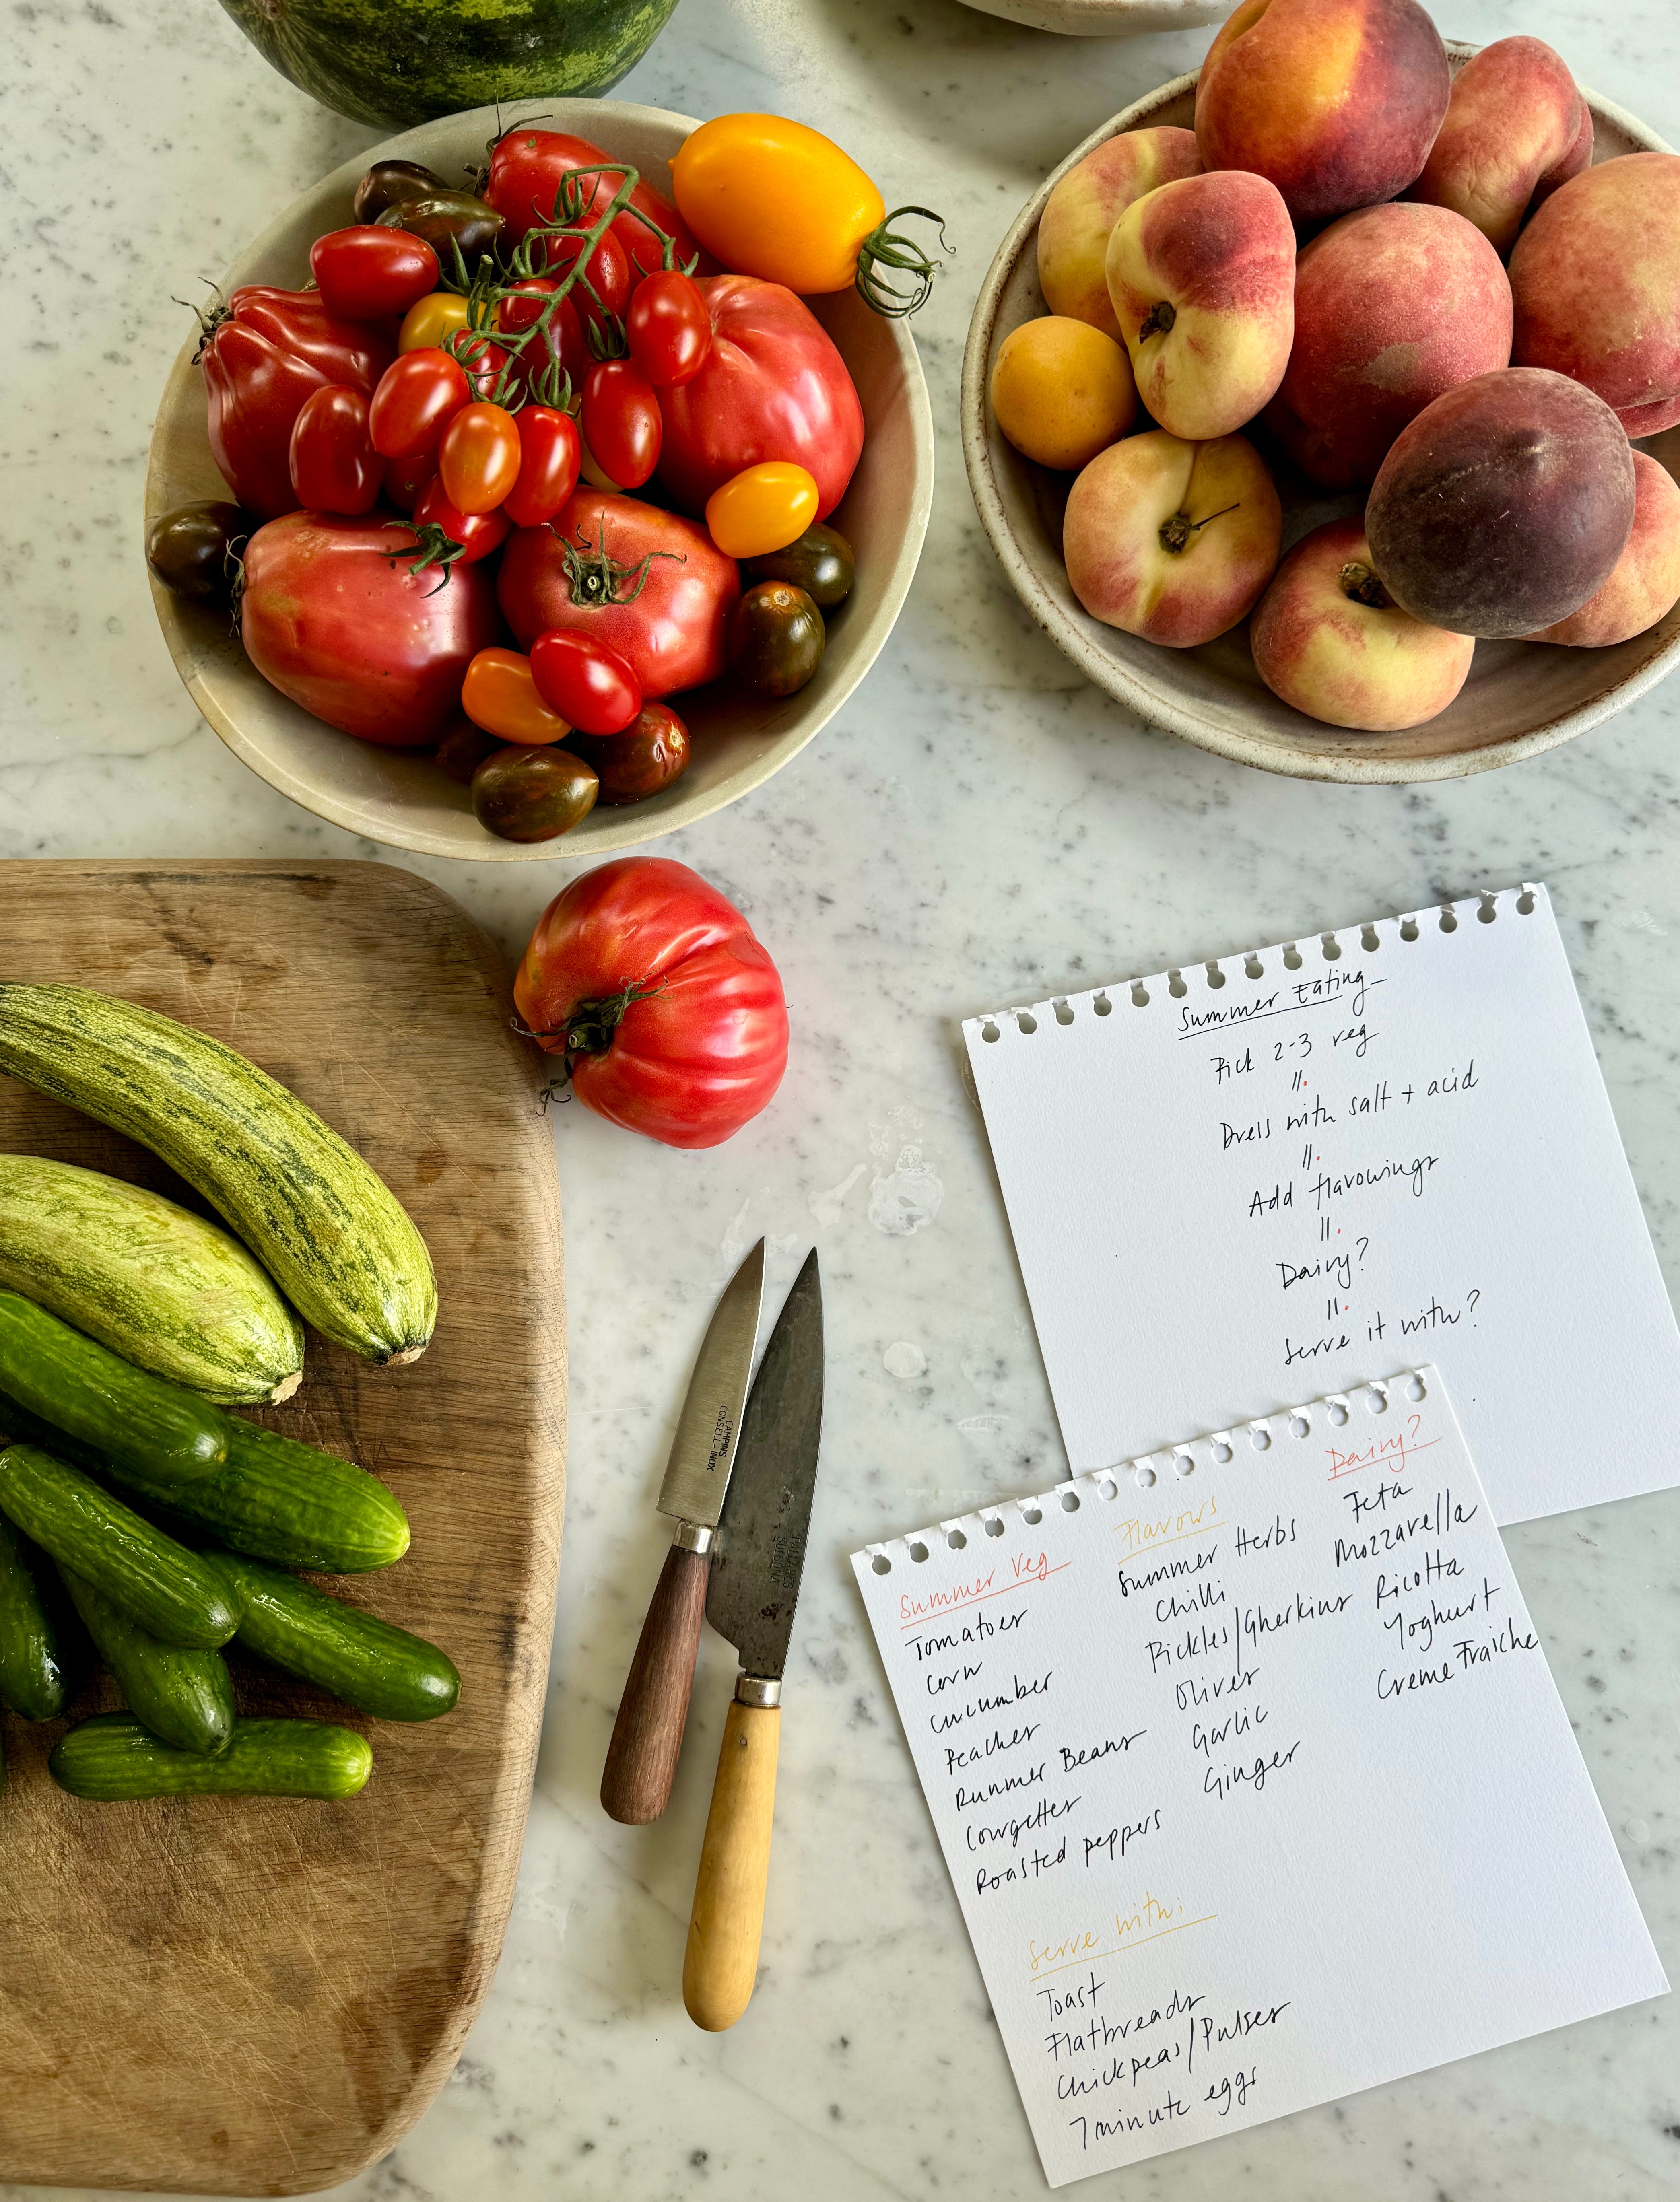 Summer Eating
Pick 2-3 veg
Dress with salt + acid
Add flavourings
Dairy?
Serve it with?
Summer Veg
Tomatoes
Corn
Cucumber
Peaches
Runner Beans
Courgettes
Roasted peppers
Flavours
Summer Herbs
Chilli
Pickles/Gherkins
Olives
Garlic
Ginger
Dairy?
Feta
Mozzarella
Ricotta
Yoghurt
Creme Fraiche
Serve with:
Toast
Flatbreads
Chickpeas/Pulses
7 minute eggs
CAMPINS
CONSELL-INOX